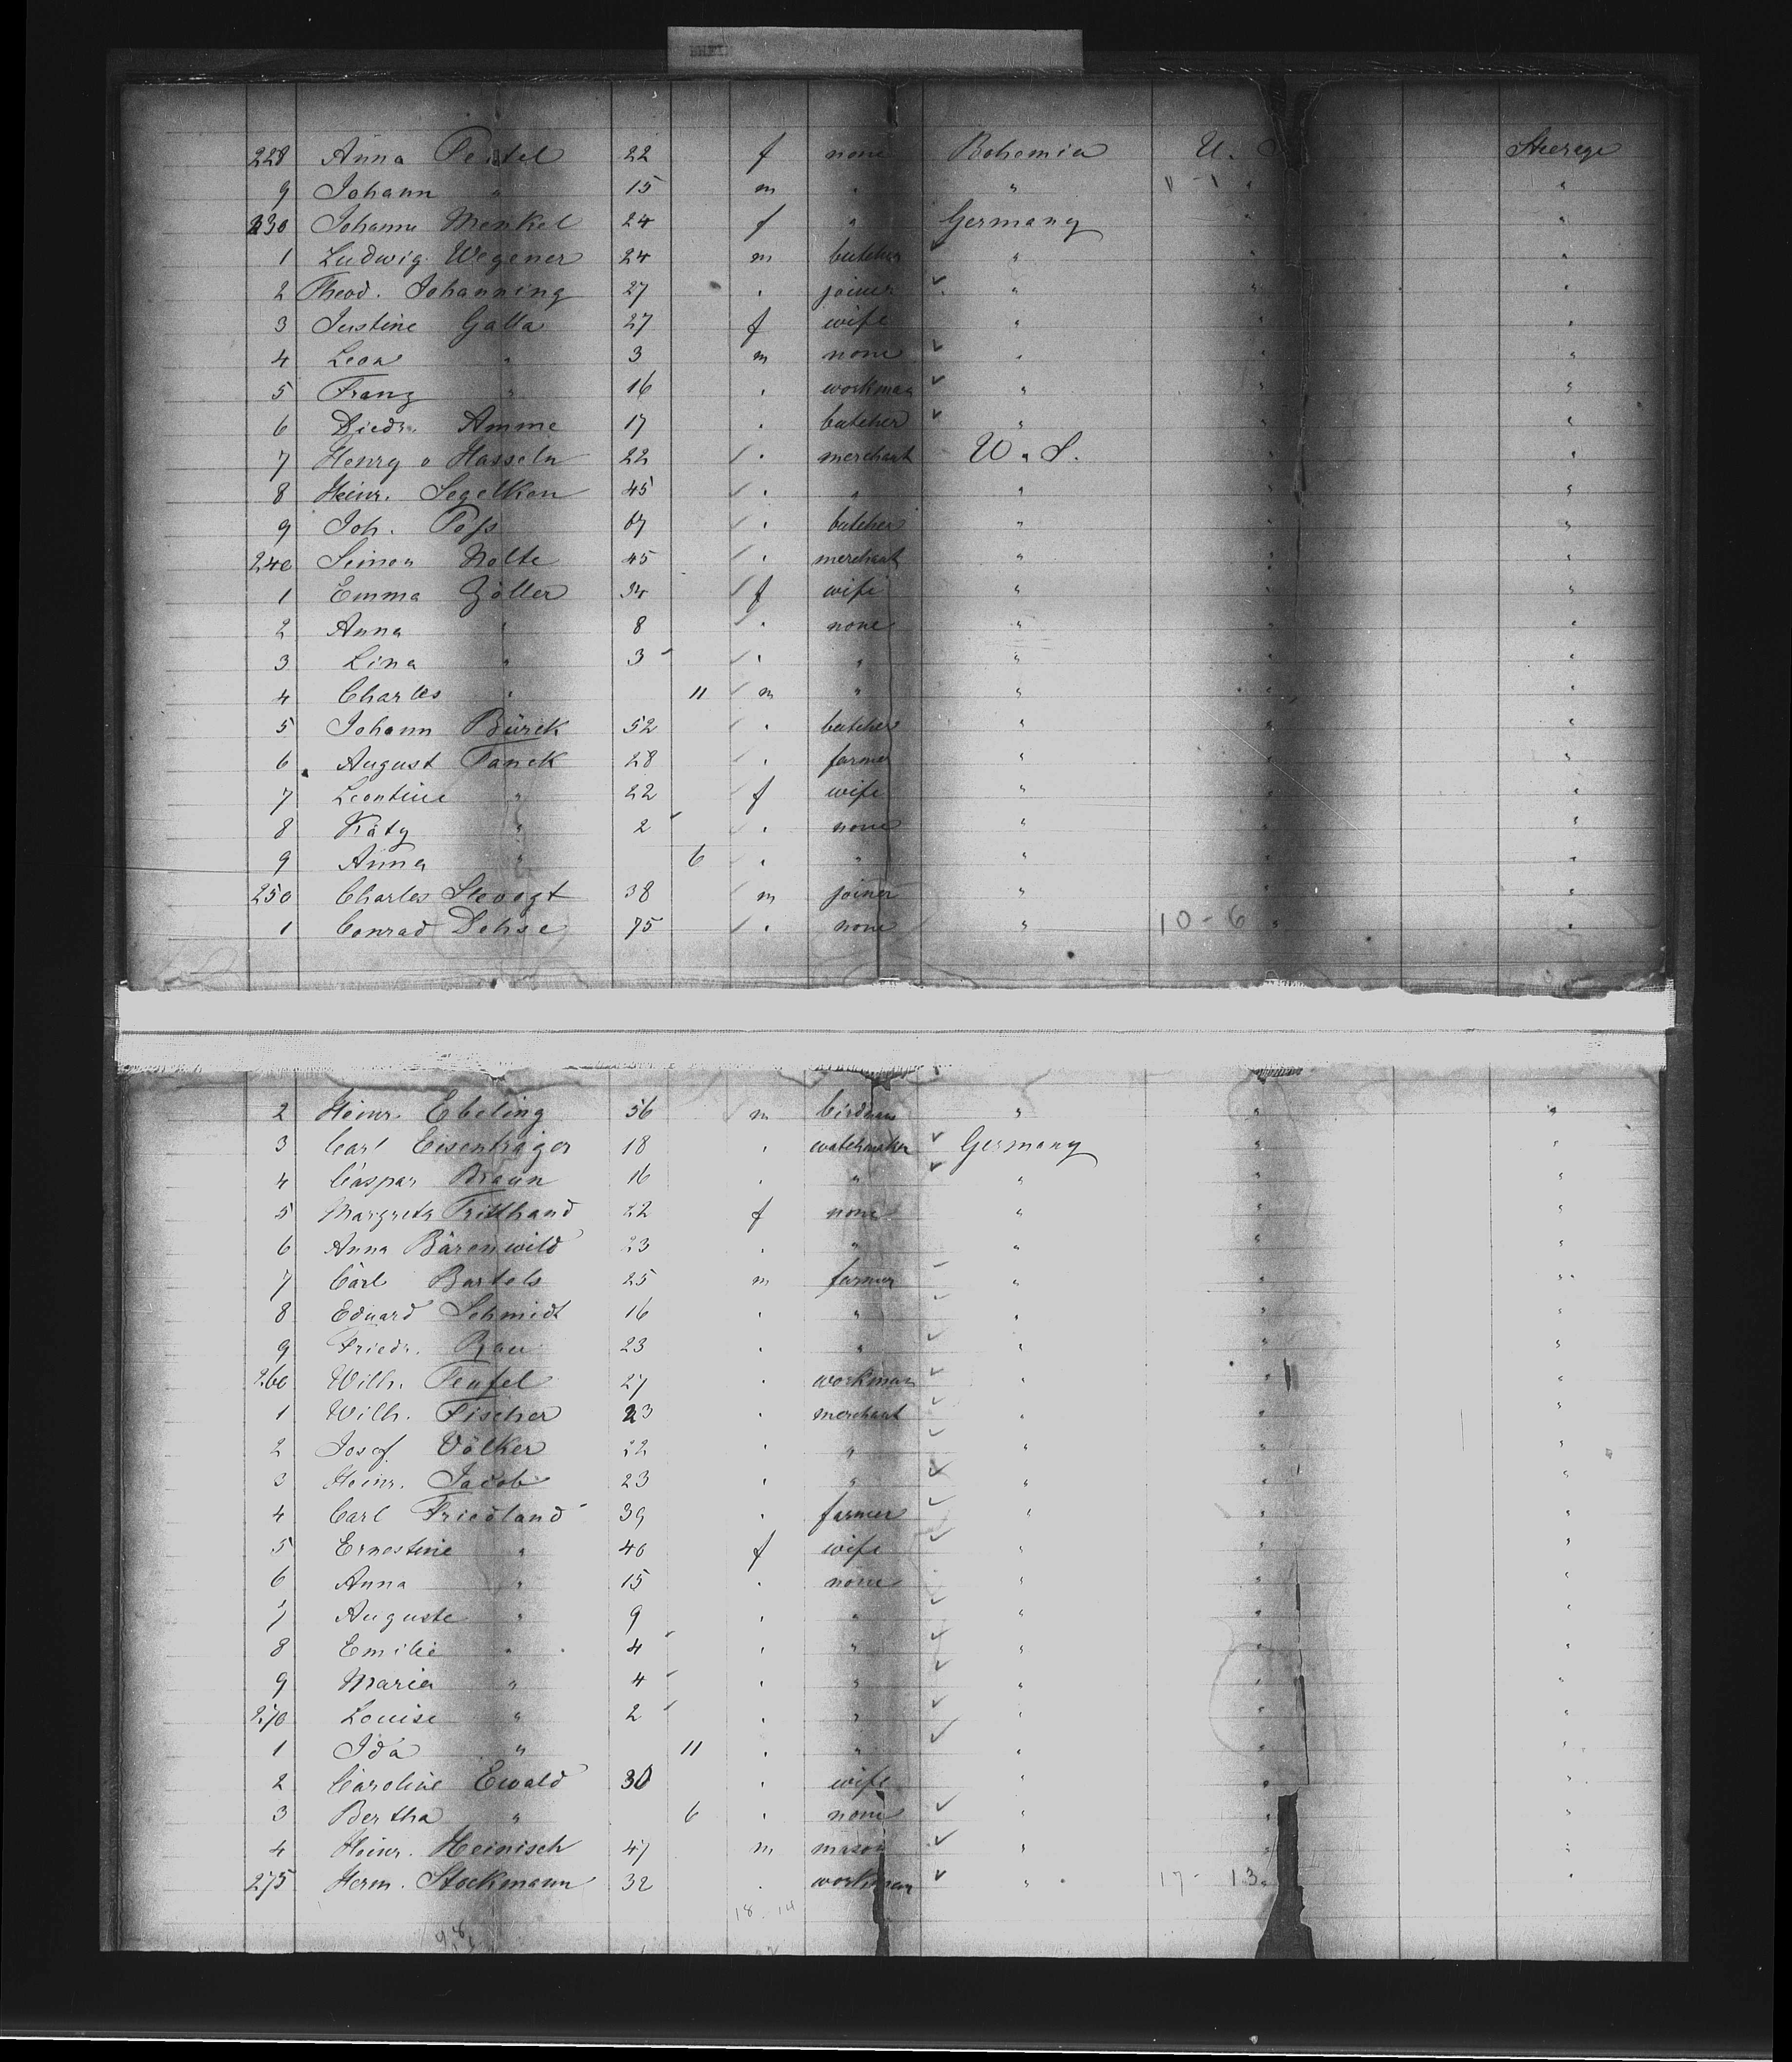 228 Anna Peitel 22 f none Bohemia U. S. Steerage
9 Johann " 15 m " " " "
230 Johanne Menkel 24 f " Germany " "
1 Ludwig Wegener 24 m butcher " " "
2 Theod. Johanning 27 " joiner " " "
3 Justine Galla 27 f wife " " "
4 Leon " 3 m none " " "
5 Franz " 16 " workman " " "
6 Diedr. Amme 17 " butcher " " "
7 Henry v Hasseln 22 " merchant U. S. " "
8 Heinr. Segelken 45 " " " " "
9 Joh. Poss 67 " butcher " " "
240 Simon Nolte 45 " merchant " " "
1 Emma Zöller 34 f wife " " "
2 Anna " 8 " none " " "
3 Lina " 3 " " " " "
4 Charles " 11 m " " " "
5 Johann Bürck 52 " butcher " " "
6 August Panck 28 " farmer " " "
7 Leontine " 22 f wife " " "
8 Käty " 2 " none " " "
9 Anna " 6 " " " " "
250 Charles Slevogt 38 m joiner " " "
1 Conrad Dehse 75 " none " 10-6 " "
2 Heinr. Ebeling 56 m " " "
3 Carl Eisenträger 18 " watchmaker Germany " "
4 Caspar Braun 16 " " " " "
5 Margreth Tritthand 22 f none " " "
6 Anna Bärenwild 23 " " " " "
7 Carl Bartels 25 m farmer " " "
8 Eduard Schmidt 16 " " " " "
9 Friedr. Rau 23 " " " " "
260 Wilh. Teufel 27 " workman " " "
1 Wilh. Fischer 23 " merchant " " "
2 Josef Völker 22 " " " " "
3 Heinr. Jacob 23 " " " " "
4 Carl Friedland 39 " farmer " " "
5 Ernestine " 40 f wife " " "
6 Anna " 15 " none " " "
7 Auguste " 9 " " " " "
8 Emilie " 4 " " " " "
9 Maria " 4 " " " " "
270 Louise " 2 " " " " "
1 Ida " 11 " " " " "
2 Caroline Ewald 30 " wife " " "
3 Bertha " 6 " none " " "
4 Heinr. Heinisch 47 m mason " " "
275 Herm. Stockmann 32 " workman " 17-13 " "
18-14